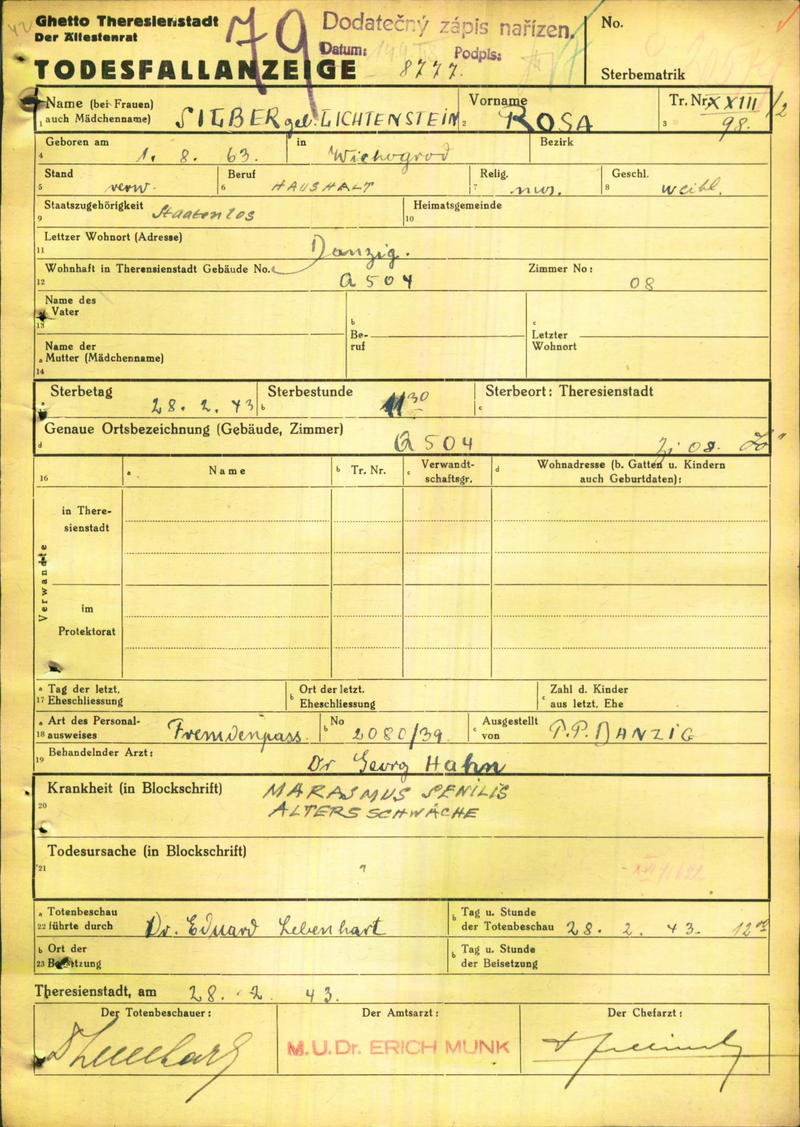 Ghetto Theresienstadt
Der Ältestenrat
79
Dodatečný zápis nařízen.
Datum: Podpis:
8777.
No.
TODESFALLANZEIGE
Sterbematrik
Name (bei Frauen) auch Mädchenname) SILBER geb. LICHTENSTEIN
1
Vorname ROSA
2
Tr. Nr. XXIII/2
3 98.
Geboren am 1. 8. 63. in Wichogrod Bezirk
4
Stand verw. Beruf HAUSHALT Relig. mos. Geschl. weibl.
5 6 7 8
Staatszugehörigkeit Staatenlos Heimatsgemeinde
9 10
Lettzer Wohnort (Adresse) Danzig.
11
Wohnhaft in Therensienstadt Gebäude No. Q 504 Zimmer No: 08
12
Name des Vater
13
b Beruf
c Letzter Wohnort
Name der
a Mutter (Mädchenname)
14
Sterbetag 28. 2. 43 b Sterbestunde 11 30 c Sterbeort: Theresienstadt
d Genaue Ortsbezeichnung (Gebäude, Zimmer) Q 504 Zi 08.
16 a Name b Tr. Nr. c Verwandtschaftsgr. d Wohnadresse (b. Gatten u. Kindern auch Geburtdaten):
Verwandte
in Theresienstadt
im Protektorat
a Tag der letzt. b Ort der letzt. Zahl d. Kinder
17 Eheschliessung Eheschliessung c aus letzt. Ehe
a Art des Personal-
18 ausweises Fremdenpass b No 2080/39 c Ausgestellt von P.P. DANZIG
19 Behandelnder Arzt: Dr Georg Hahn
Krankheit (in Blockschrift) MARASMUS SENILIS
20 ALTERSSCHWÄCHE
Todesursache (in Blockschrift)
21
a Totenbeschau
22 führte durch Dr. Eduard Lebenhart b Tag u. Stunde der Totenbeschau 28. 2. 43. 12
b Ort der
23 Beisetzung b Tag u. Stunde der Beisetzung
Theresienstadt, am 28. 2. 43.
Der Totenbeschauer: Der Amtsarzt: Der Chefarzt:
M.U.Dr. ERICH MUNK